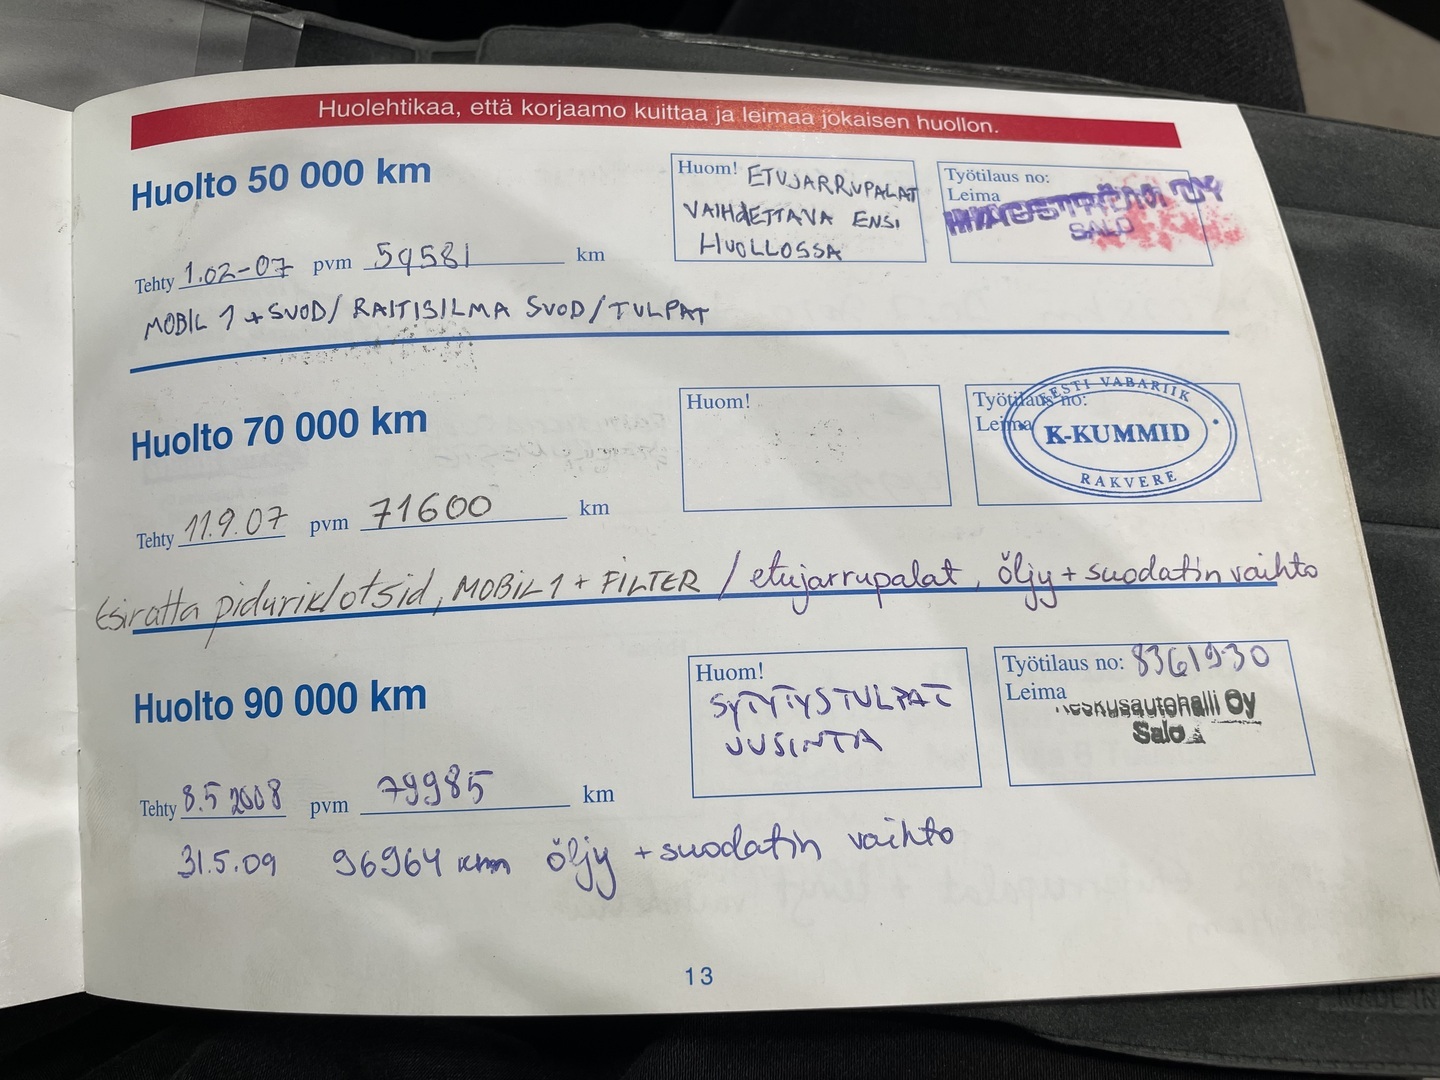 Huolehtikaa, että korjaamo kuittaa ja leimaa jokaisen huollon.
Huolto 50 000 km
Huom! ETUJARRUPALAT
VAIHDETTAVA ENSI
HUOLLOSSA
Työtilaus no:
Leima
HÄGGSTRÖM OY
SALO
Tehty 1.02-07 pvm 59581 km
MOBIL 1 + SUOD/ RAITISILMA SUOD/TULPAT
Huolto 70 000 km
Huom!
Työtilaus no:
Leima
EESTI VABARIIK
K-KUMMID
RAKVERE
Tehty 11.9.07 pvm 71600 km
Esiratta piduriklotsid, MOBIL 1 + FILTER / etujarrupalat, öljy + suodatin vaihto
Huolto 90 000 km
Huom!
SYTYTYSTULPAT
UUSINTA
Työtilaus no: 8361930
Leima
Keskusautohalli Oy
Salo
Tehty 8.5 2008 pvm 79985 km
31.5.09 96964 km öljy + suodatin vaihto
13